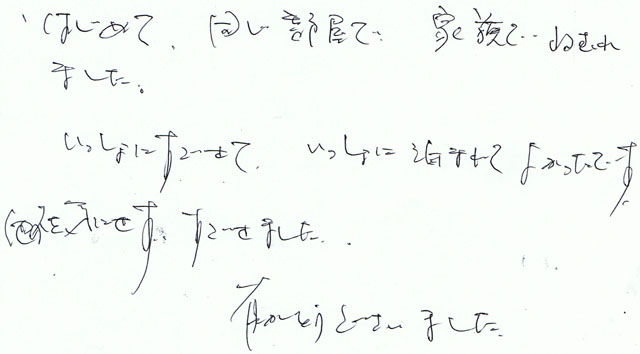 はじめて、同じ部屋で 家族で ねむれ
ました。
いっしょにすごせて、いっしょに泊まれてよかったです
を気にせず、すごせました。
ありがとうございました。